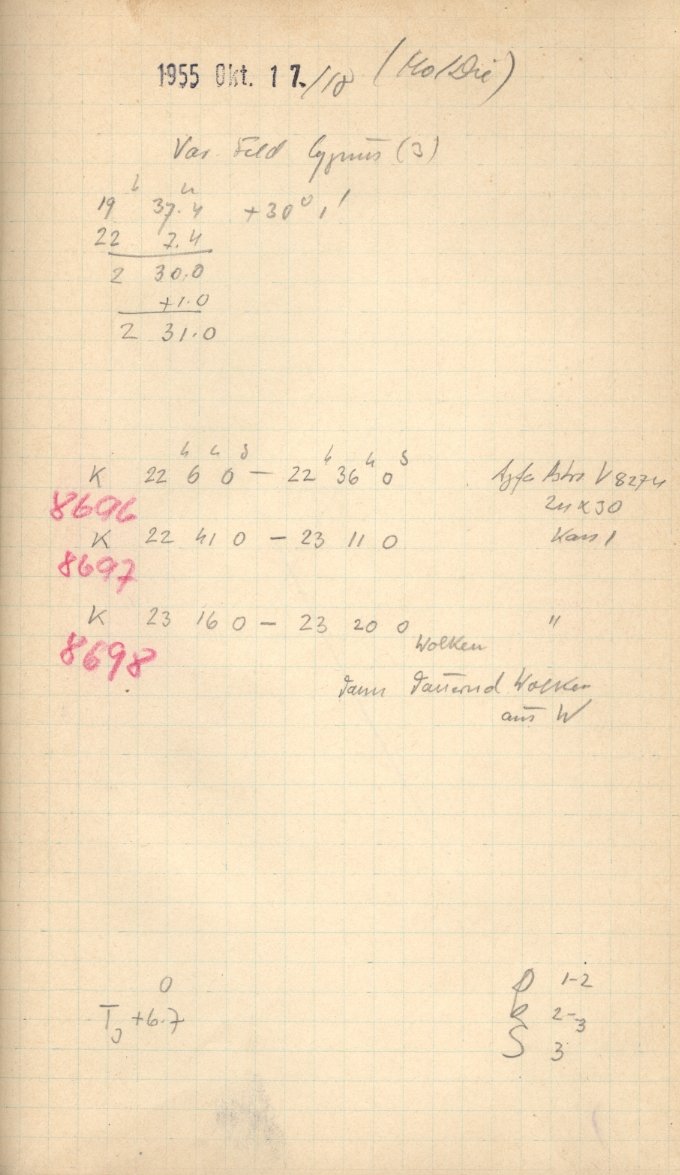 1955 Okt. 17./18 (Mo/Die)
Var. Feld Cygnus (3)
19h 37.4m +30° 1'
22 7.4
2 30.0
+1.0
2 31.0
K 22h 6m 0s — 22h 36m 0s Agfa Astro V 8274
8696
K 22 41 0 — 23 11 0
8697
K 23 16 0 — 23 20 0 "
Wolken
8698
dann dauernd Wolken
aus W
0 1-2
T +6.7 2-3
S 3